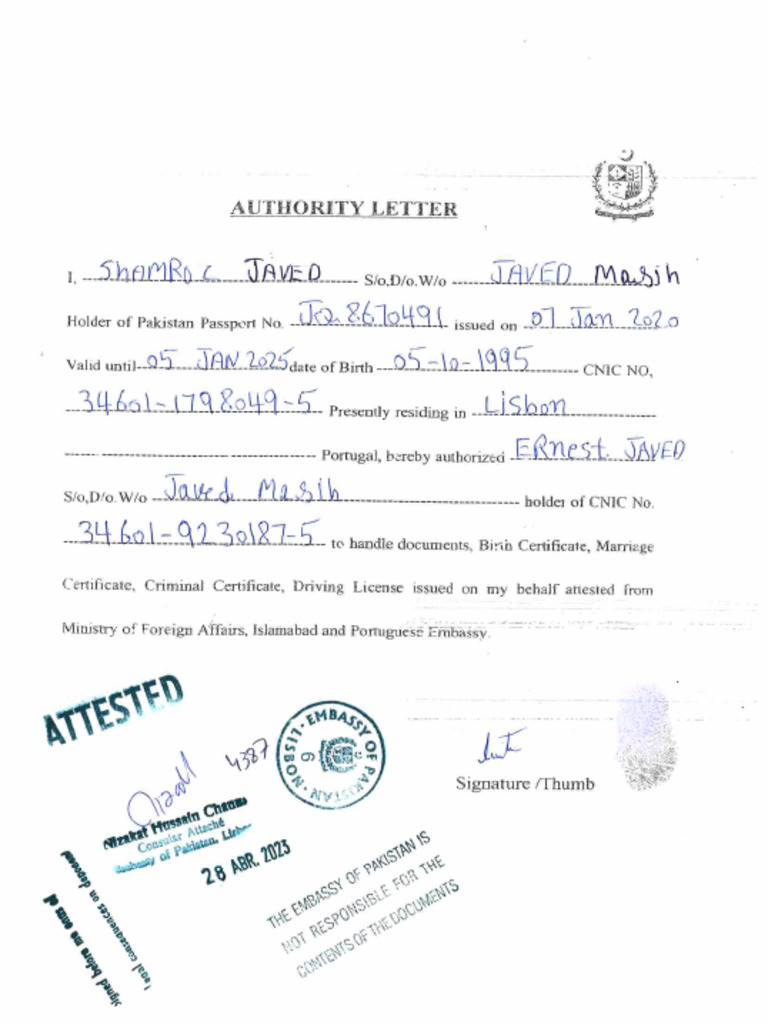 AUTHORITY LETTER
I, SHAMROC JAVED S/o,D/o.W/o JAVED Masih
Holder of Pakistan Passport No. JQ 8670491 issued on 07 Jan 2020
Valid until 05 JAN 2025 date of Birth 05-10-1995 CNIC NO,
34601-1798049-5 Presently residing in Lisbon
Portugal, hereby authorized ERnest JAVED
S/o,D/o.W/o Javed Masih holder of CNIC No.
34601-9230187-5 to handle documents, Birth Certificate, Marriage
Certificate, Criminal Certificate, Driving License issued on my behalf attested from
Ministry of Foreign Affairs, Islamabad and Portuguese Embassy.
ATTESTED
4387
EMBASSY OF PAKISTAN · LISBON ·
6
Signature /Thumb
Nizakat Hussain
Consular Attaché
Embassy of Pakistan,
28 ABR. 2023
THE EMBASSY OF PAKISTAN IS
NOT RESPONSIBLE FOR THE
CONTENTS OF THE DOCUMENTS
Signed before me
consequences on